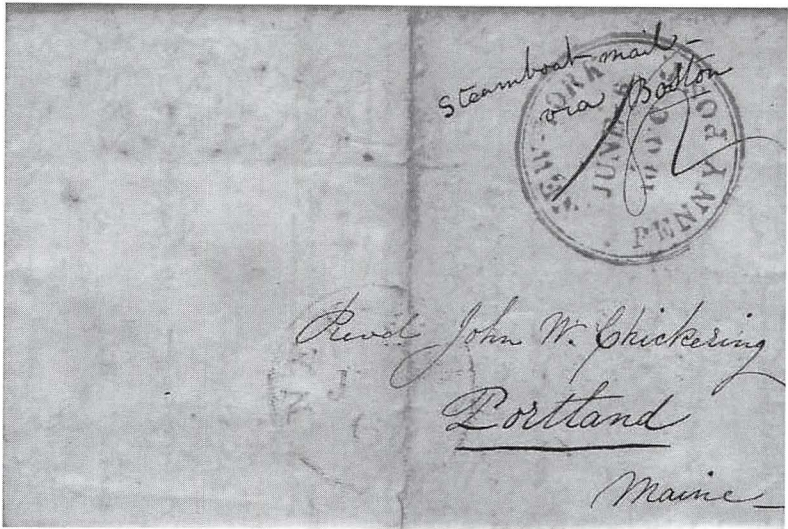 Steamboat mail –
via Boston
NEW-YORK
PENNY POST
JUNE
Revd John W. Chickering
Portland
Maine –